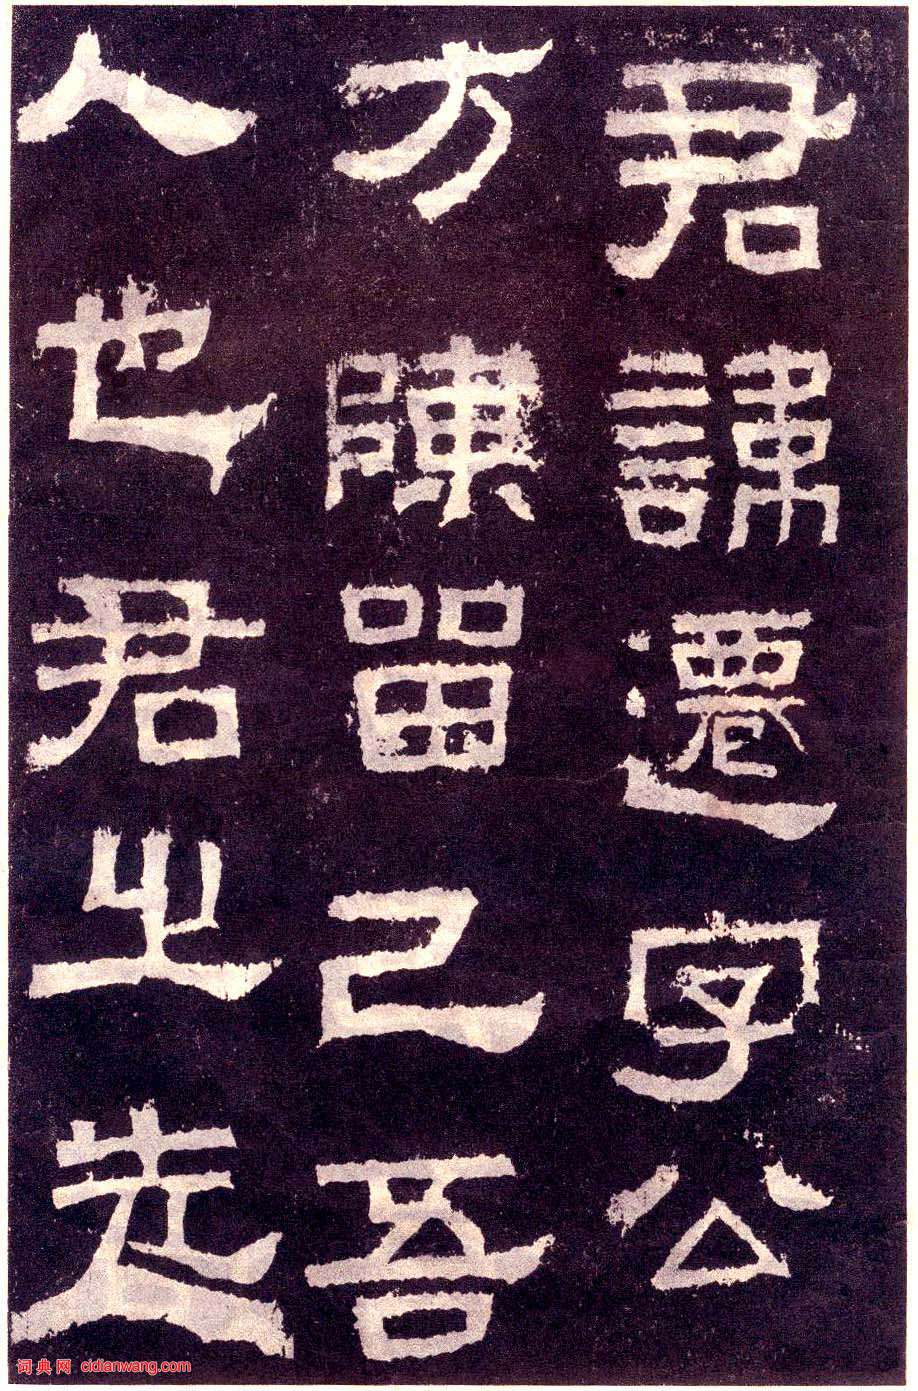 君諱遷字公
方陳留己吾
人也君之先
词典网 cidianwang.com